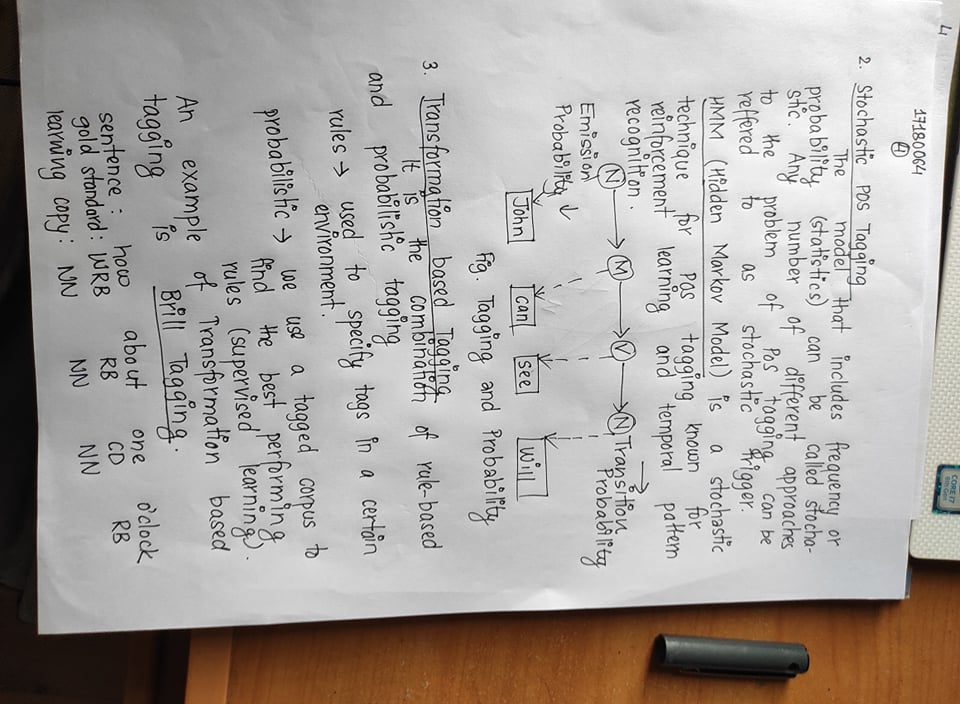 17180064
4
4
2. Stochastic POS Tagging
The model that includes frequency or
probability (statistics) can be called stocha-
stic. Any number of different approaches
to the problem of POS tagging can be
reffered to as stochastic trigger.
HMM (Hidden Markov Model) is a stochastic
technique for POS tagging known for
reinforcement learning and temporal pattern
recognition.
N M V N Transition
Probability
Emission
Probability
John can see Will
Fig. Tagging and Probability
3. Transformation based Tagging
It is the combination of rule-based
and probabilistic tagging
rules → used to specify tags in a certain
environment.
probabilistic → we use a tagged corpus to
find the best performing
rules (supervised learning).
An example of Transformation based
tagging is Brill Tagging.
sentence: how about one o'clock
gold standard: WRB RB CD RB
learning copy: NN NN NN
CORE i7